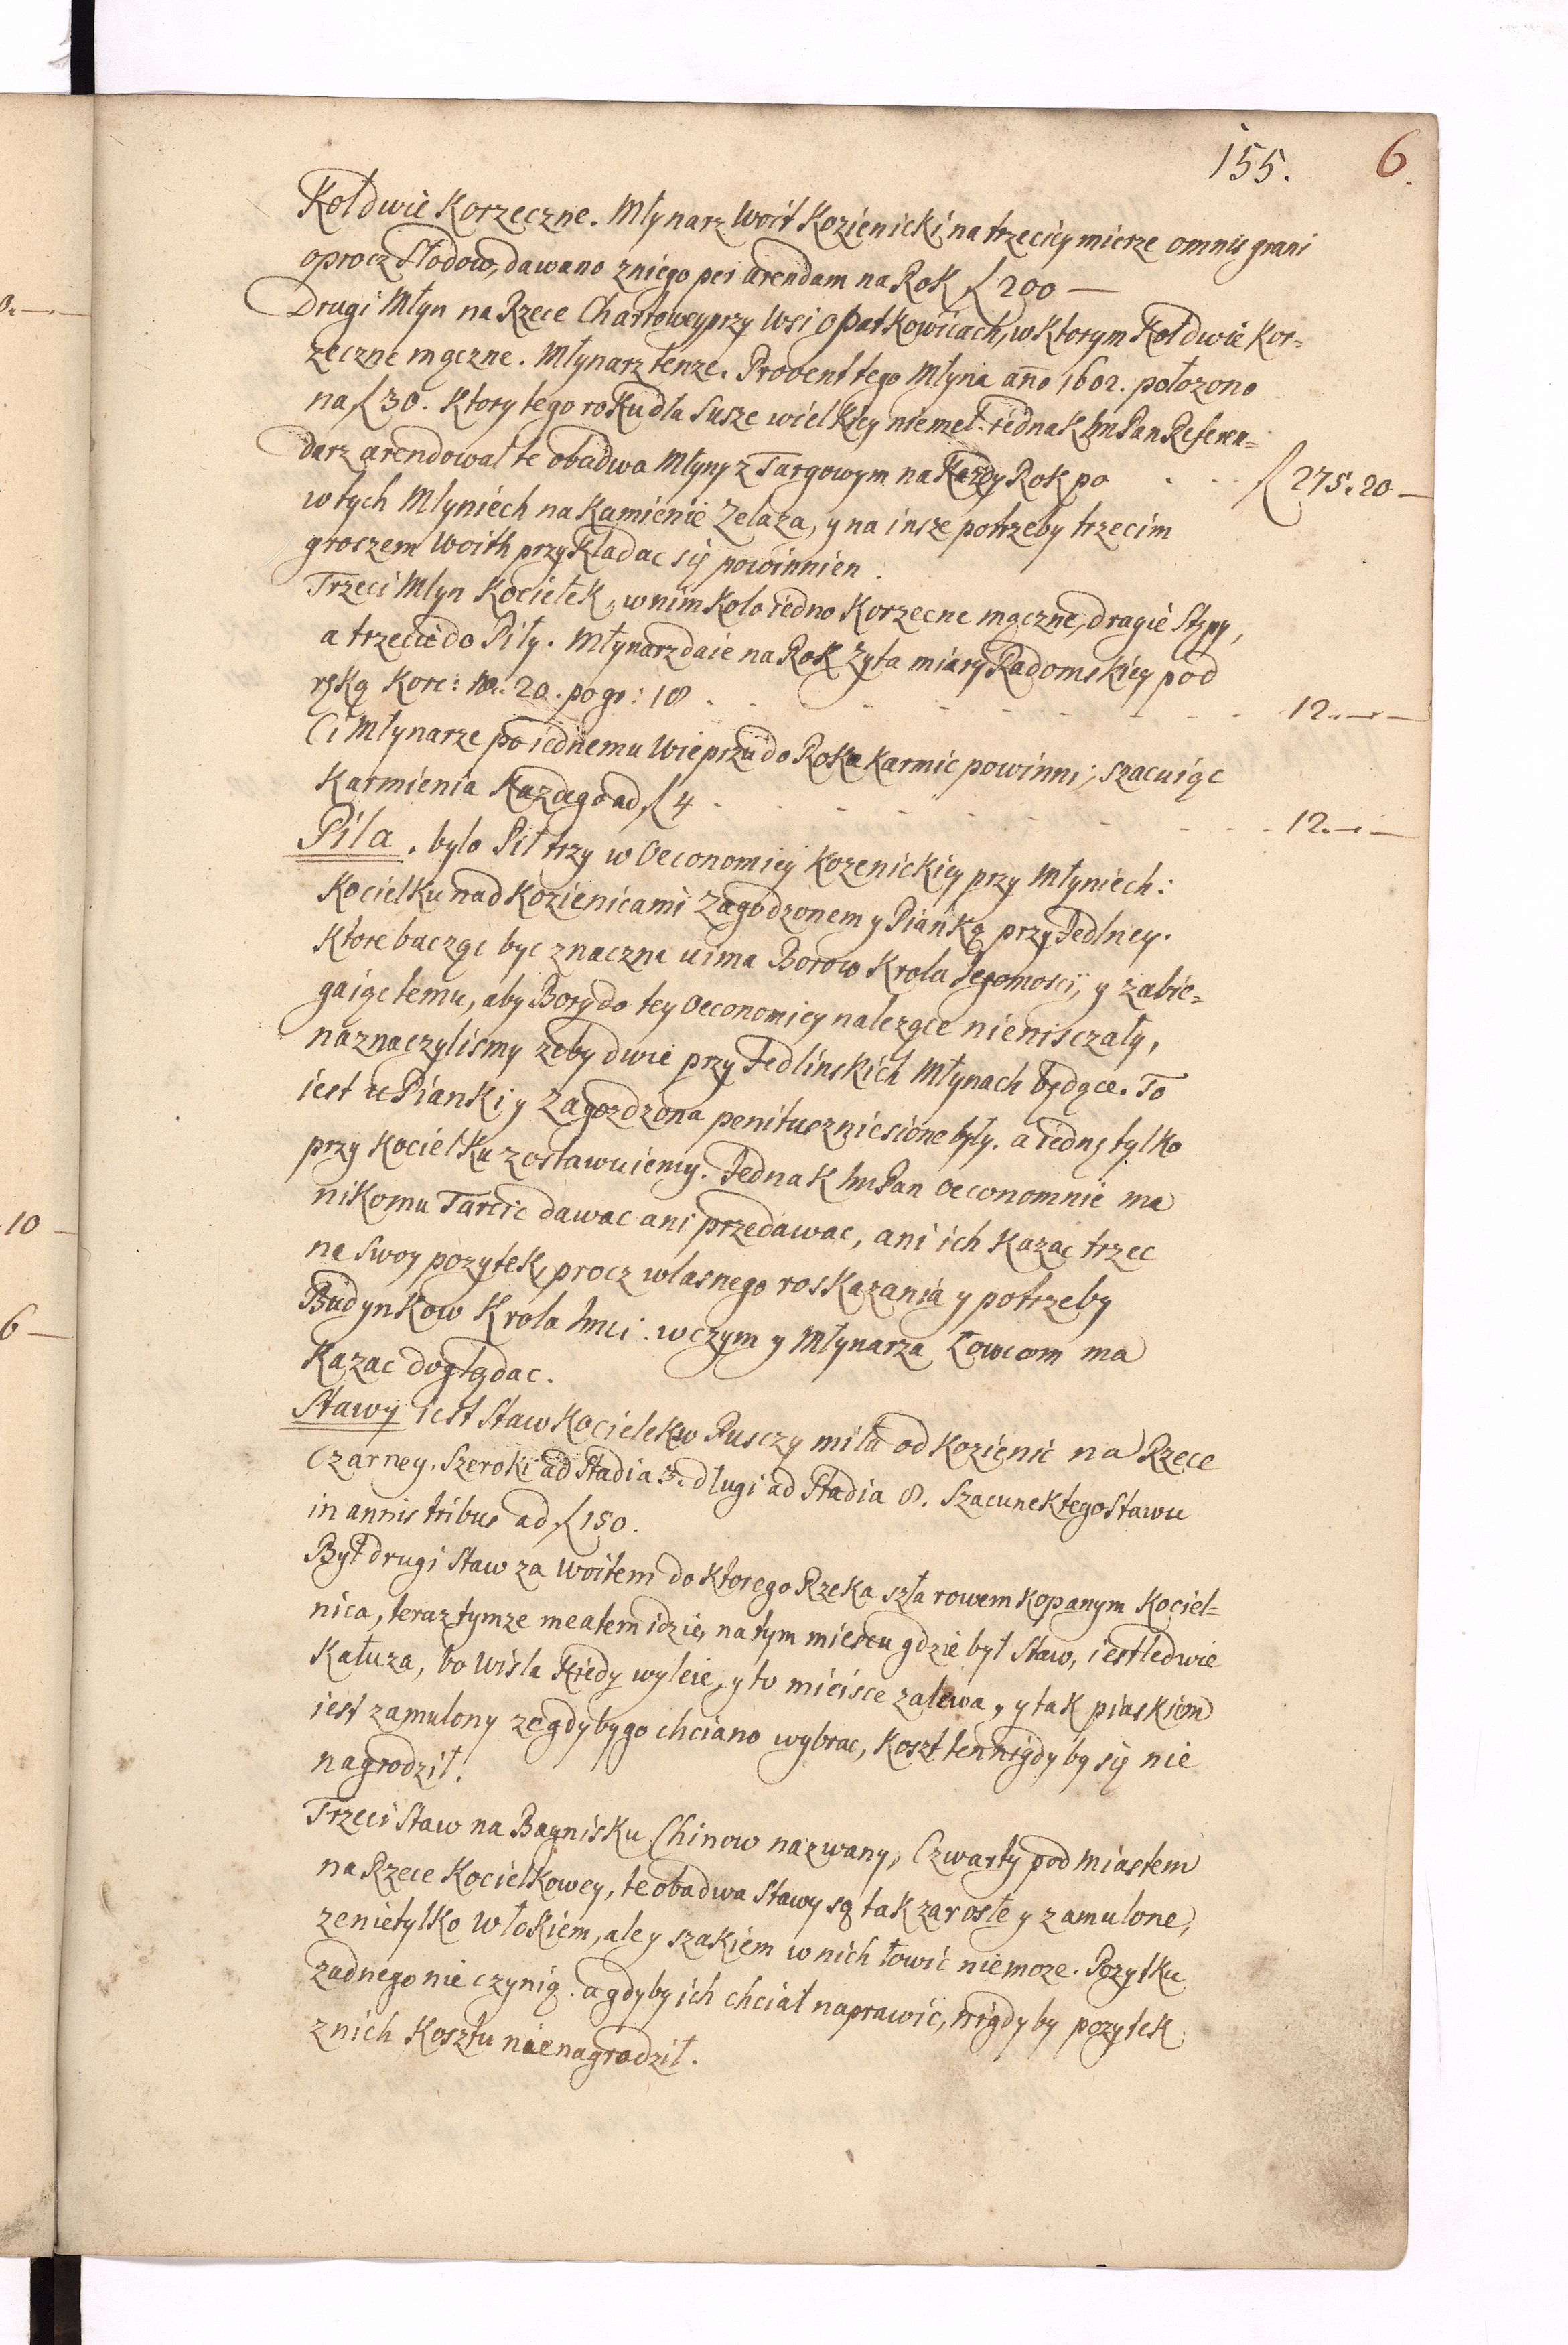 155. 6.
Koł dwie Korzeczne. Młynarz Woit Kozienicki na trzeciey mierze omnis grani
oprocz Słodow, dawano zniego per arendam na Rok f 200 —
Drugi Młyn na Rzece Chartowey przy Wsi Opatkowicach, w Ktorym Koł dwie Kor=
zeczne mączne. Młynarz tenze. Provent tego Młyna año 1602. położono
na f 30. Ktory tego roku dla Susze wielkiey niemeł. iednak Im Pan Referen=
darz arendował te obadwa Młyny z Targowym na Kazdy Rok po . . . f 275. 20 —
w tych Młyniech na Kamienie Zelaza, y na insze potrzeby trzecim
groszem Woith przykładac się powinnien.
Trzeci Młyn Kociełek, w nim Koło iedno Korzecne mączne, drugie Stępy,
a trzecie do Piły. Młynarz daie na Rok Żyta miary Radomskiey pod
ręką Korc: No: 20. po gr: 18 . . . 12. — —
Ci Młynarze po iednemu Wieprzu do Roku Karmic powinni; szacuiąc
Karmienia Kazdego ad f 4 . . . 12. — —
Piła. było Pił trzy w Oeconomiey Kozenickiey przy Młyniech:
Kocielku nad Kozienicami Zagodzonem y Pianką przy Jedlney.
Ktore bacząc byc znaczna uima Borow Krola Jegomości, y zabie=
gaiąc temu, aby Bory do tey Oeconomiey należące nieniszczały,
naznaczylismy zeby dwie przy Jedlinskich Młynach będące. To
iest u Pianki y Zagozdzona penitus zniesione były. a iednę tylko
przy Kocielku zostawuiemy. Jednak Im Pan Oeconom nie ma
nikomu Tarcic dawac ani przedawac, ani ich Kazac trzec
na Swoy pozytek, procz własnego roskazania y potrzeby
Budynkow Krola Jmci. w czym y Młynarza Łowcom ma
Kazac doglądac.
Stawy iest Staw Kocielek w Pusczy miła od Kozienic na Rzece
Czarney. Szeroki ad Stadia 3. długi ad Stadia 8. Szacunek tego Stawu
in annis tribus ad f 150.
Był drugi Staw za Woitem do Ktorego Rzeka szła rowem kopanym Kociel=
nica, teraz tymze meatem idzie, na tym miescu gdzie był Staw, iest ledwie
Kałuza, bo Wisła Kiedy wyleie, y to mieisce zalewa, y tak piaskiem
iest zamulony ze gdyby go chciano wybrac, Koszt ten nigdy by się nie
nagrodził.
Trzeci Staw na Bagnisku Chinow nazwany, Czwarty pod Miastem
na Rzece Kocielkowey, te obadwa Stawy są tak zarosłe y zamulone,
ze nie tylko Włokiem, ale y szakiem w nich łowic niemoze. Pozytku
zadnego nie czynią. a gdyby ich chciał naprawić, nigdy by pozytek
z nich Kosztu nienagrodził.
0. — —
10 —
6 —